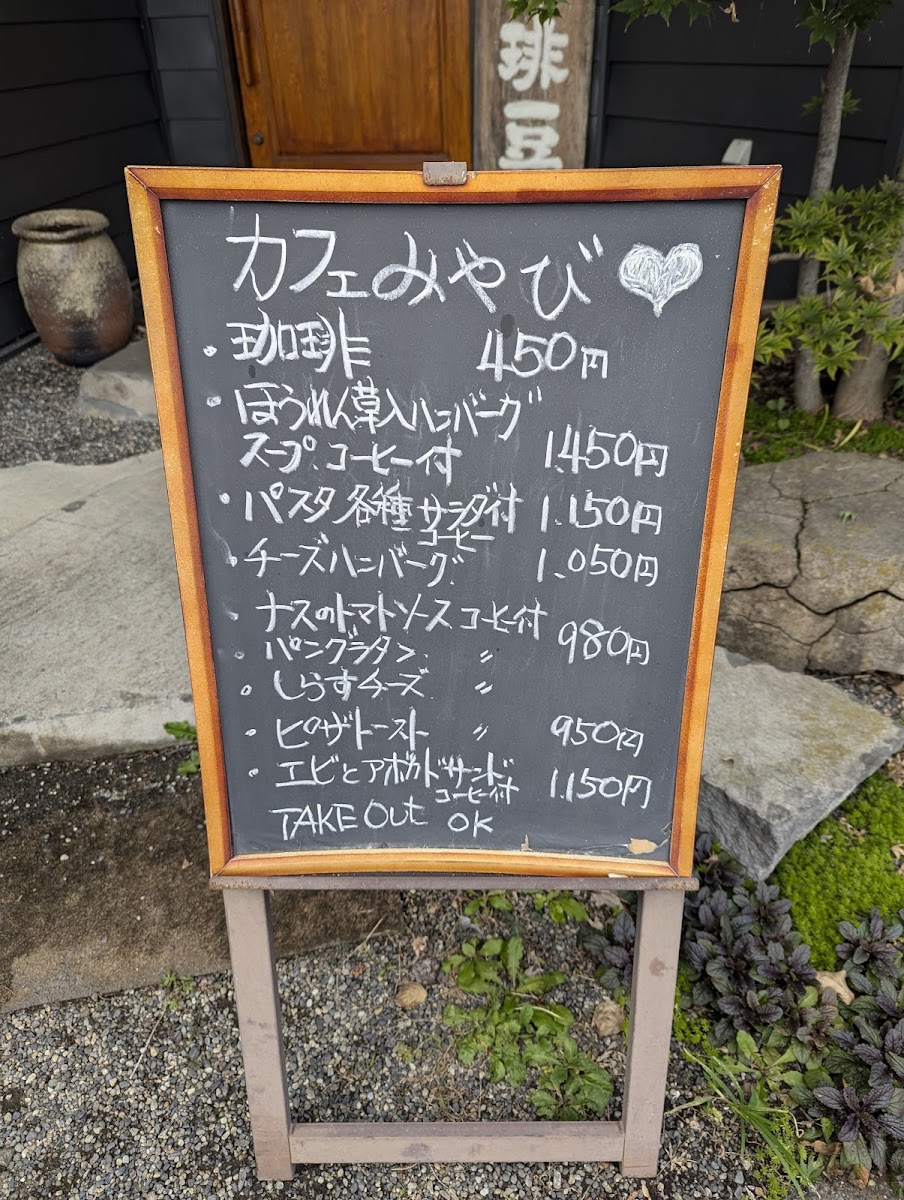 琲豆
カフェみやび
・珈琲 450円
・ほうれん草入ハンバーグ
スープ、コーヒー付 1.450円
・パスタ各種サラダ付 1.150円
コーヒー
・チーズハンバーグ 1.050円
・ナスのトマトソース コーヒー付 980円
・パングラタン 〃
・しらすチーズ 〃
・ピザトースト 〃 950円
・エビとアボカドサンド 1.150円
コーヒー付
TAKE OUt OK